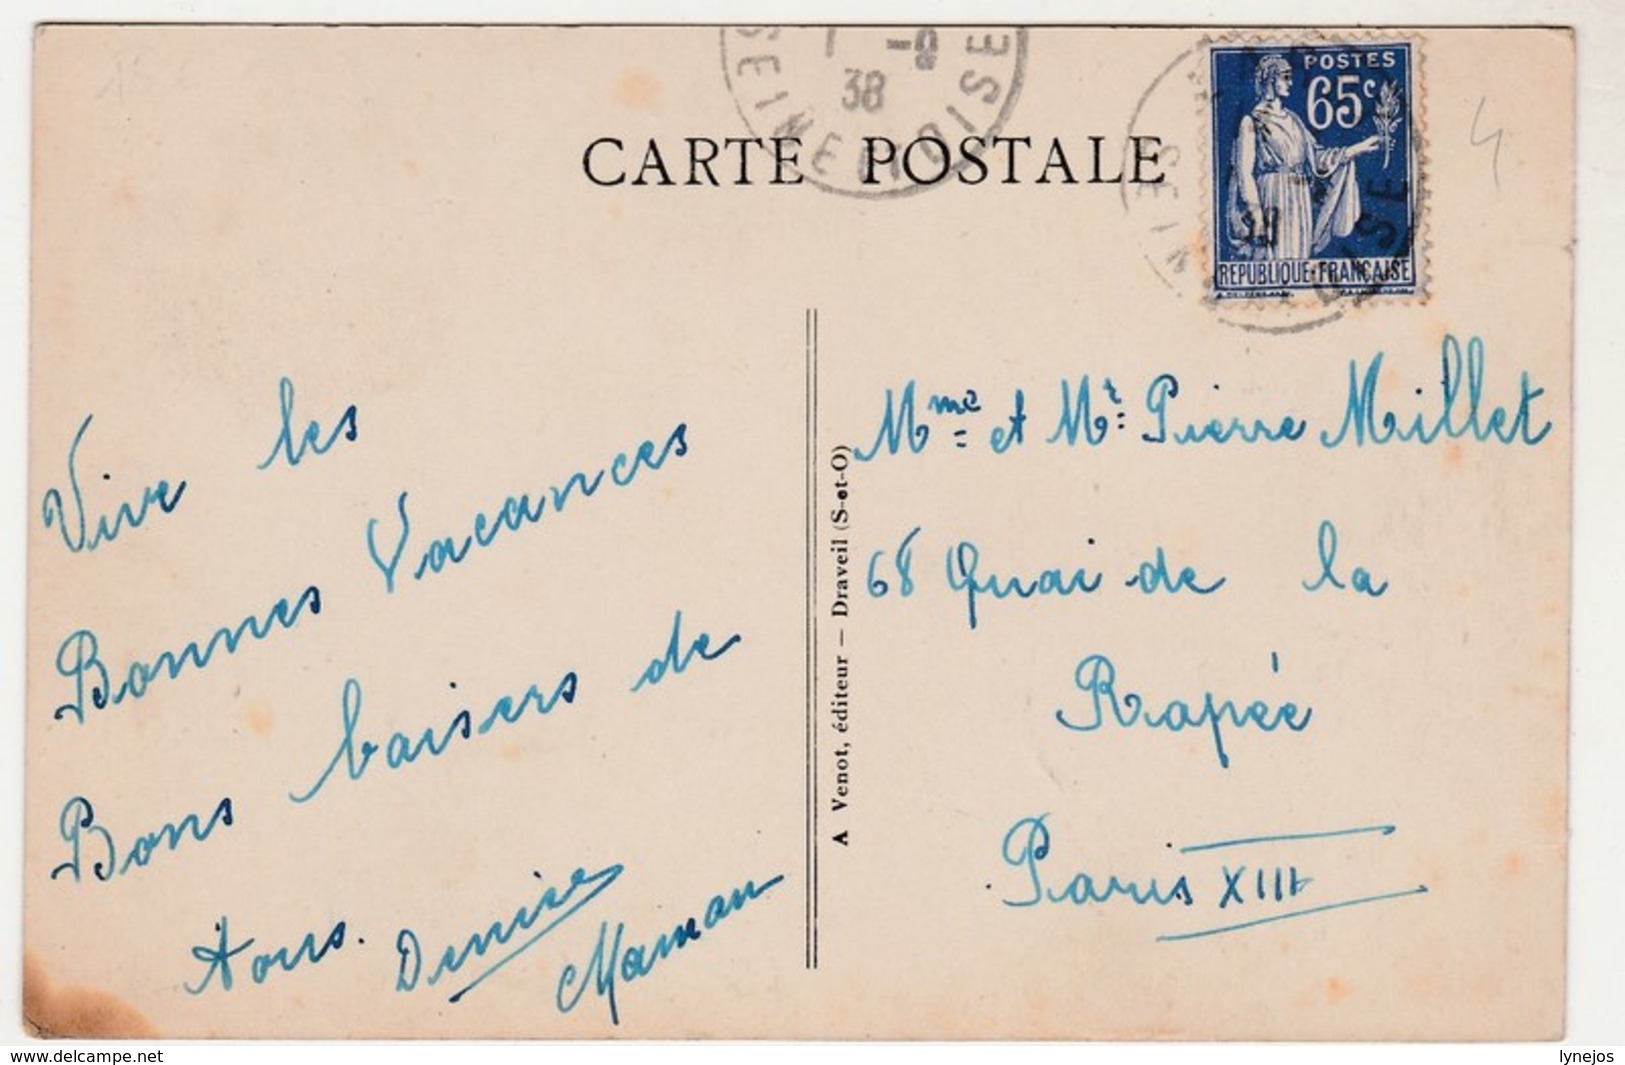 SEINE ET OISE
38
CARTE POSTALE
POSTES
65c
REPUBLIQUE FRANÇAISE
4
Vive les
Bonnes Vacances
Bons baisers de
tous. Denise
Maman
A Venot, éditeur — Draveil (S-et-O)
Mme et Mr Pierre Millet
68 Quai de la
Rapée
Paris XIII
www.delcampe.net
lynejos